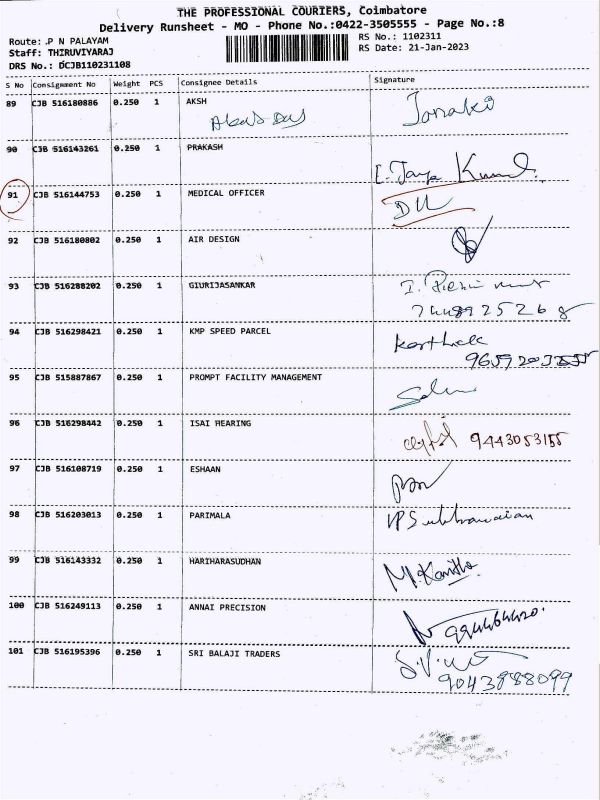 THE PROFESSIONAL COURIERS, Coimbatore
Delivery Runsheet - MO - Phone No.:0422-3505555 - Page No.:8
Route: .P N PALAYAM
Staff: THIRUVIYARAJ
DRS No.: DCJB110231108
RS No.: 1102311
RS Date: 21-Jan-2023
S No Consignment No Weight PCS Consignee Details Signature
89 CJB 516180886 0.250 1 AKSH
90 CJB 516143261 0.250 1 PRAKASH
Kumar
91 CJB 516144753 0.250 1 MEDICAL OFFICER
92 CJB 516180802 0.250 1 AIR DESIGN
93 CJB 516288202 0.250 1 GIURIJASANKAR
94 CJB 516298421 0.250 1 KMP SPEED PARCEL
95 CJB 515887867 0.250 1 PROMPT FACILITY MANAGEMENT
96 CJB 516298442 0.250 1 ISAI HEARING 9443053155
97 CJB 516108719 0.250 1 ESHAAN
98 CJB 516203013 0.250 1 PARIMALA
99 CJB 516143332 0.250 1 HARIHARASUDHAN M.Kavitha.
100 CJB 516249113 0.250 1 ANNAI PRECISION
101 CJB 516195396 0.250 1 SRI BALAJI TRADERS
9043988099